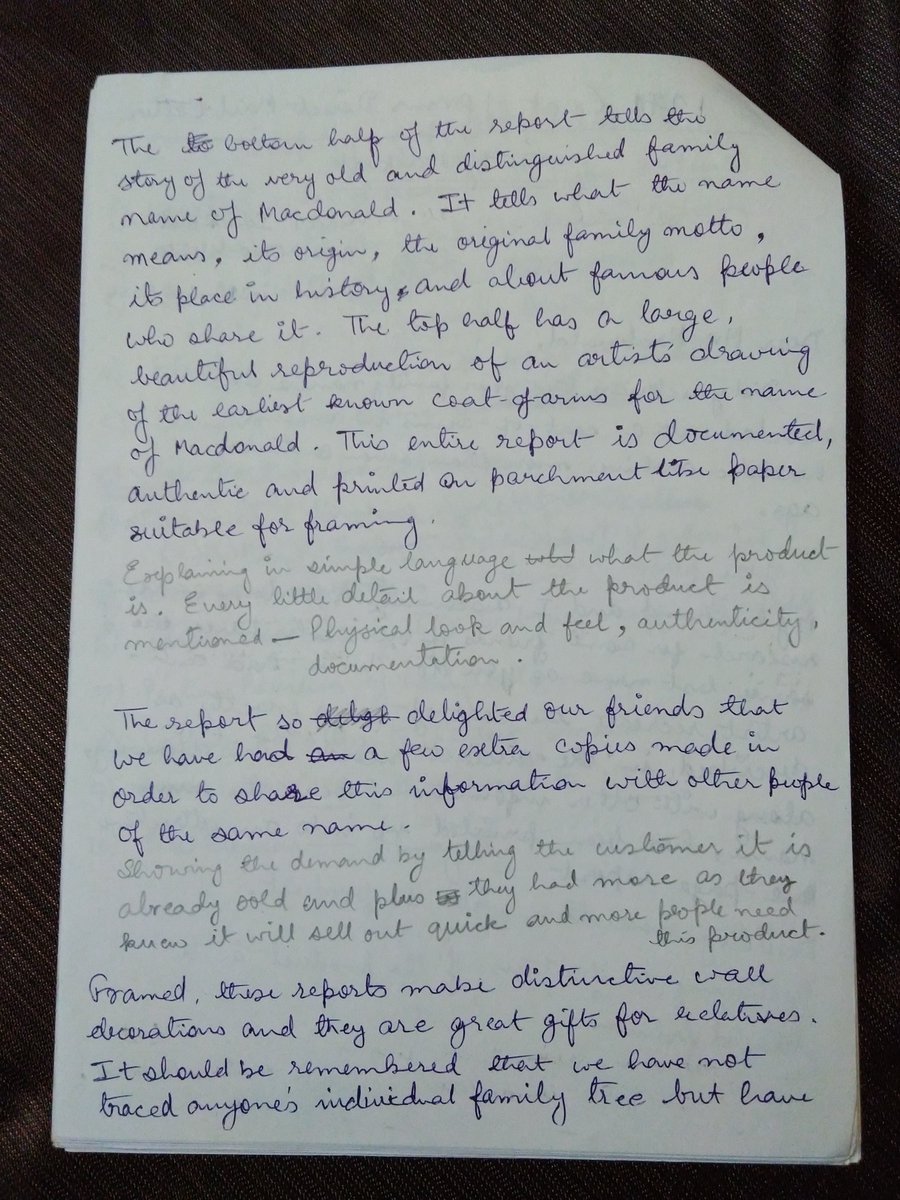 The bottom half of the report tells the
story of the very old and distinguished family
name of Macdonald. It tells what the name
means, its origin, the original family motto,
its place in history, and about famous people
who share it. The top half has a large,
beautiful reproduction of an artists drawing
of the earliest known coat-of-arms for the name
of Macdonald. This entire report is documented,
authentic and printed on parchment like paper
suitable for framing.
Explaining in simple language what the product
is. Every little detail about the product is
mentioned — Physical look and feel, authenticity,
documentation.
The report so delighted our friends that
we have had a few extra copies made in
order to share this information with other people
of the same name.
Showing the demand by telling the customer it is
already sold and plus they had more as they
knew it will sell out quick and more people need
this product.
Framed, these reports make distinctive wall
decorations and they are great gifts for relatives.
It should be remembered that we have not
traced anyone's individual family tree but have